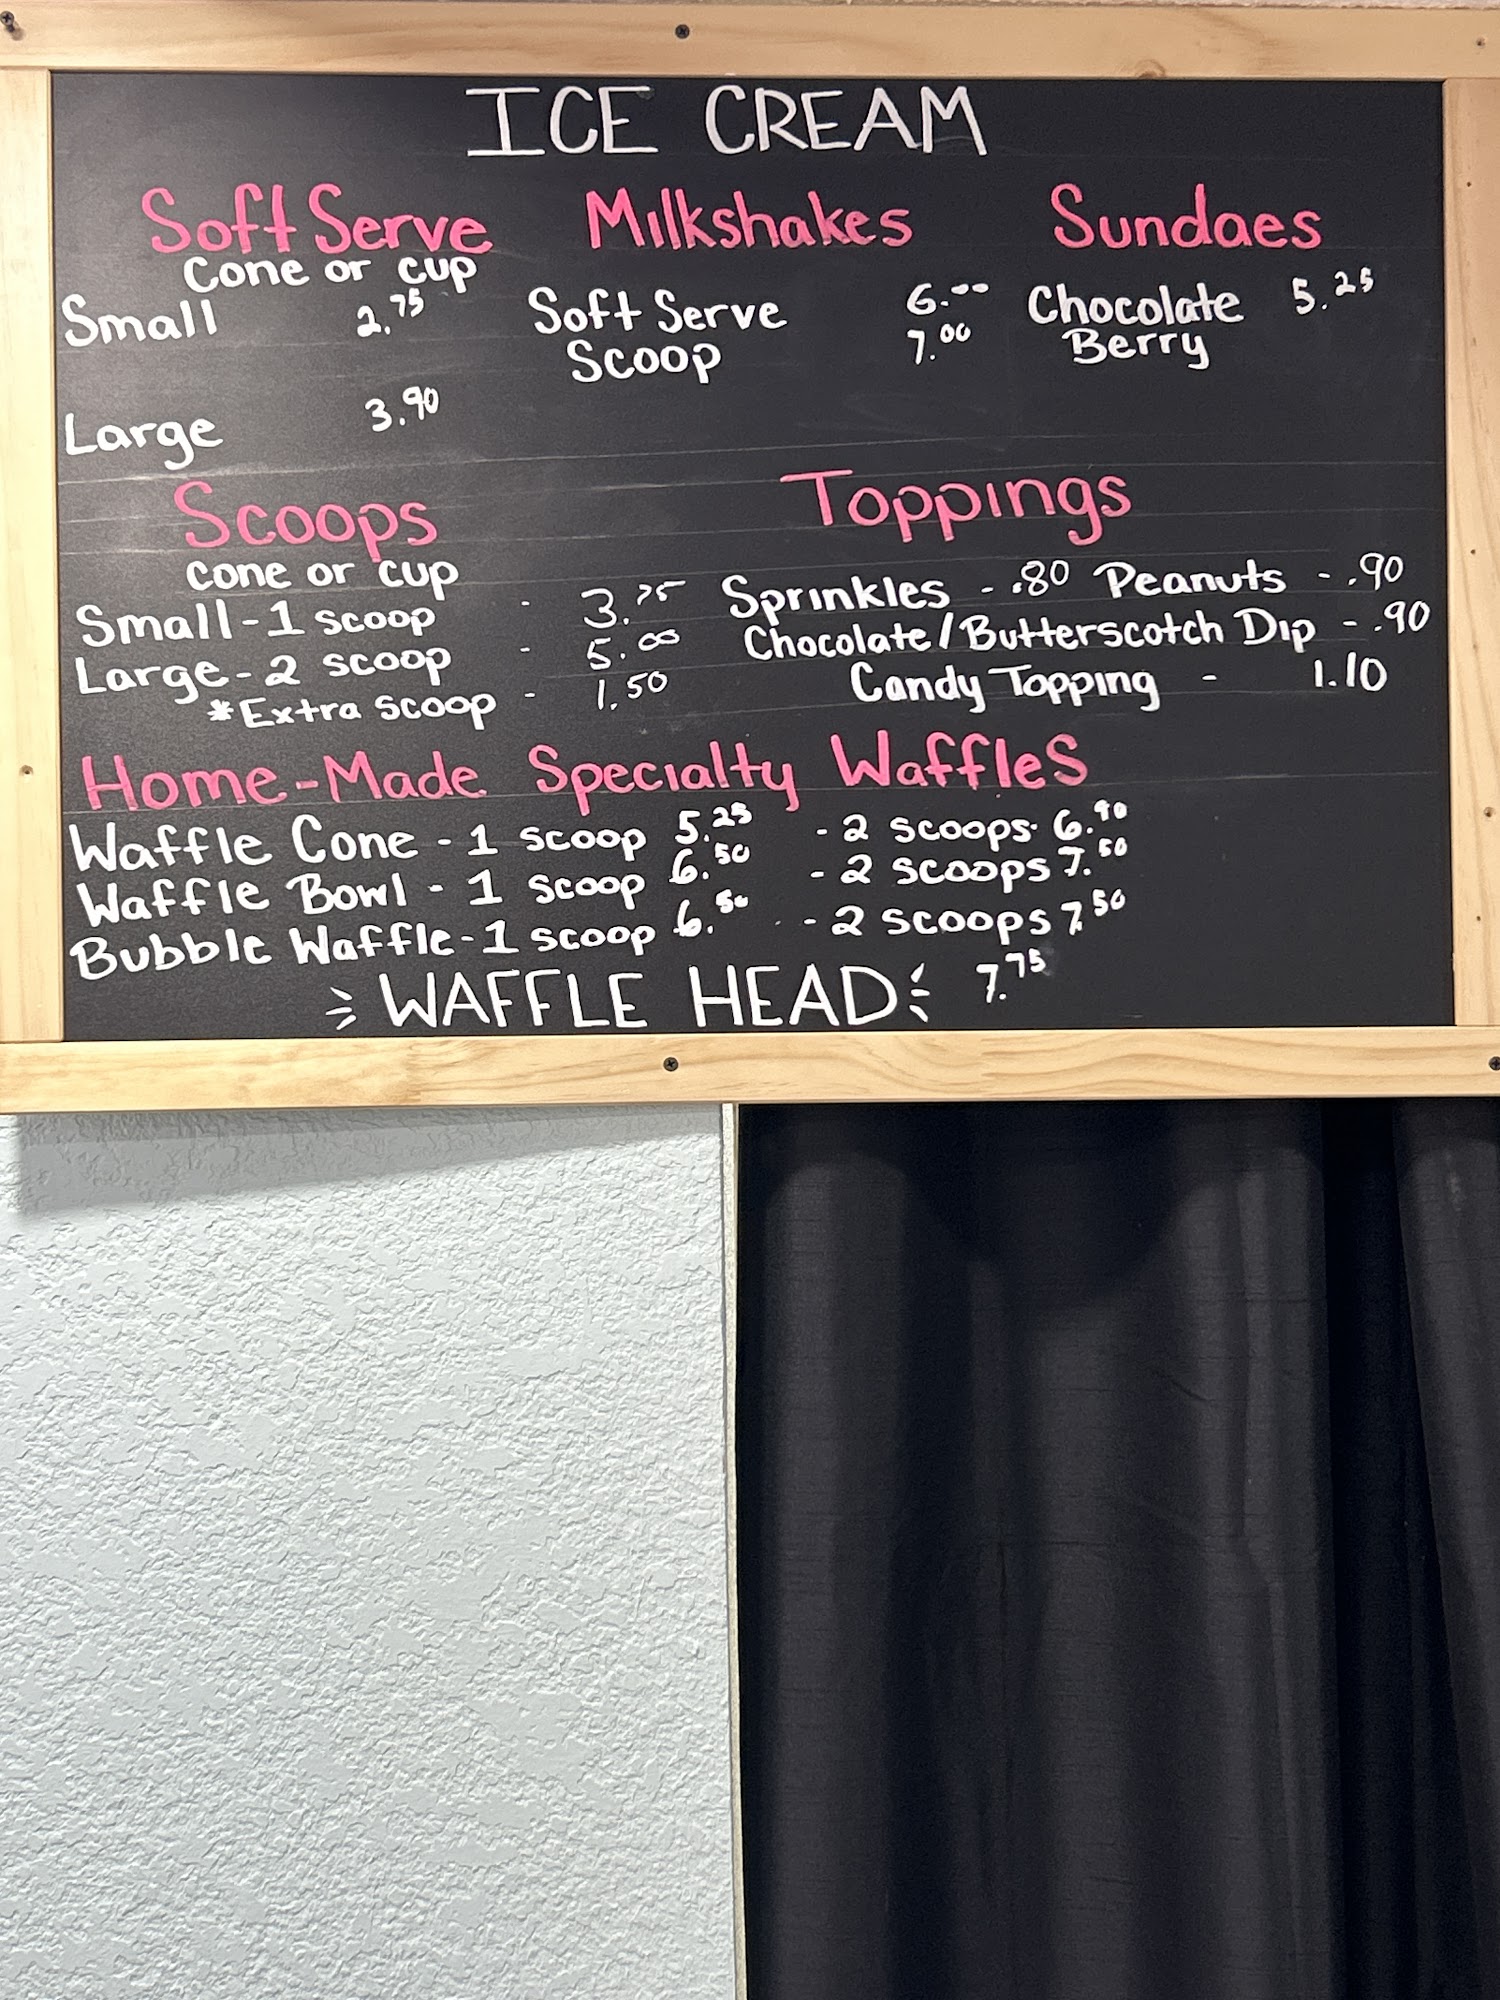 ICE CREAM
Soft Serve
Cone or cup
Small 2.75
Large 3.90
Milkshakes
Soft Serve 6.00
Scoop 7.00
Sundaes
Chocolate 5.25
Berry
Scoops
cone or cup
Small-1 scoop - 3.75
Large-2 scoop - 5.00
*Extra scoop - 1.50
Toppings
Sprinkles - .80 Peanuts - .90
Chocolate/Butterscotch Dip - .90
Candy Topping - 1.10
Home-Made Specialty Waffles
Waffle Cone - 1 scoop 5.25 - 2 scoops 6.90
Waffle Bowl - 1 scoop 6.50 - 2 scoops 7.50
Bubble Waffle-1 scoop 6.50 - 2 scoops 7.50
WAFFLE HEAD 7.75